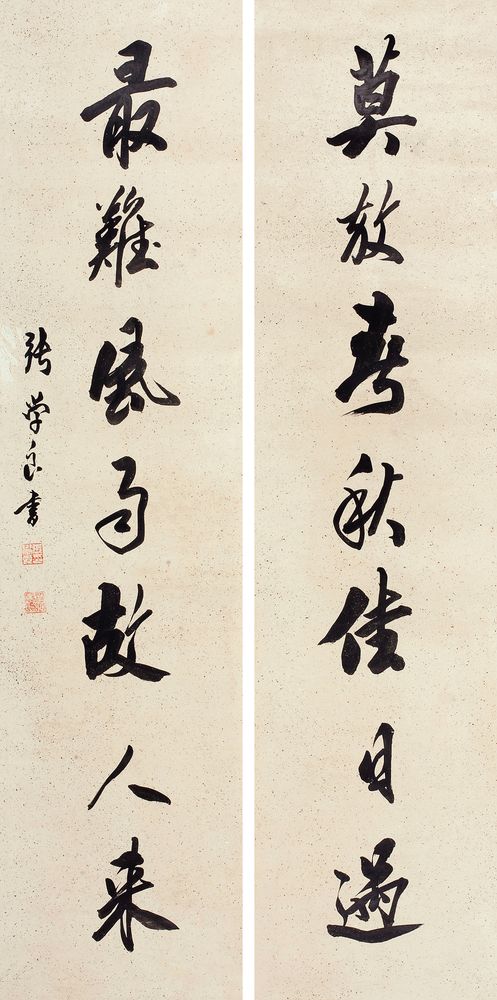 莫放春秋佳日過
最難風雨故人来
張学良書